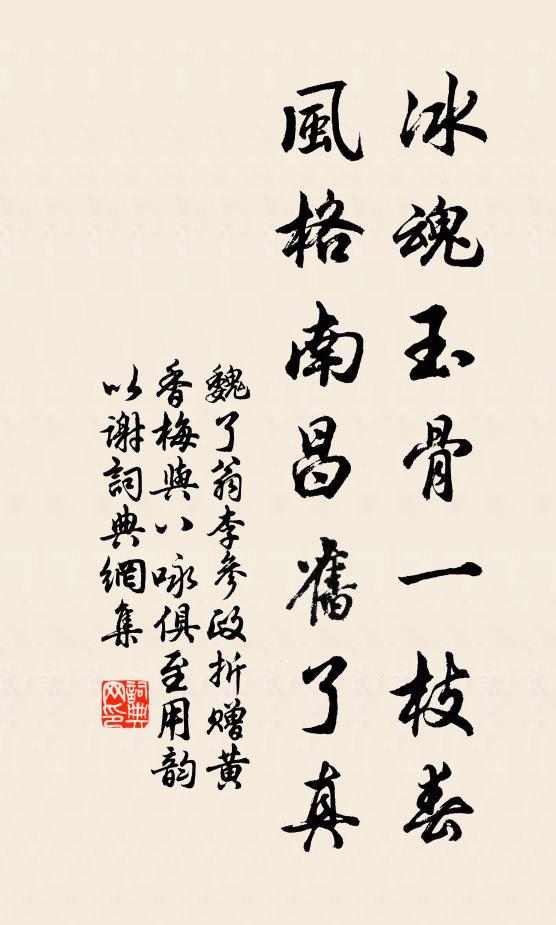 冰魂玉骨一枝春
風格南昌舊了真
魏了翁李參政折贈黄
香梅與八咏俱至用韵
以謝詞典網集
詞典网印